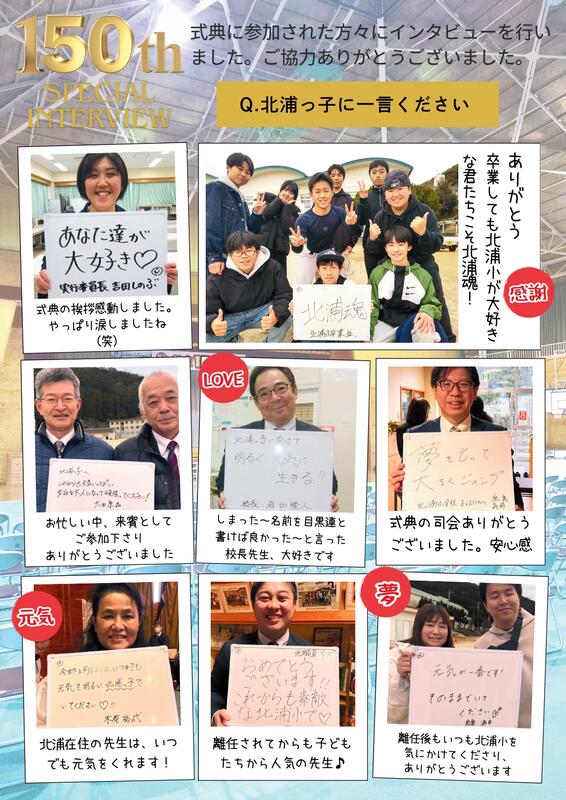 150th
SPECIAL
INTERVIEW
式典に参加された方々にインタビューを行い
ました。ご協力ありがとうございました。
Q.北浦っ子に一言ください
あなた達が
大好き♡
実行委員長 吉田しのぶ
式典の挨拶感動しました。
やっぱり涙しましたね
(笑)
ありがとう
卒業しても北浦小が大好き
な君たちこそ北浦魂！
感謝
北浦魂
北浦小卒業生
北浦っ子へ
お忙しい中、来賓として
ご参加下さり
ありがとうございました
LOVE
北浦っ子に向けて
明るく元気に
生きる!?
校長
しまった〜名前を目黒連と
書けば良かった〜と言った
校長先生、大好きです
夢をもって
大きくジャンプ
北浦小学校
式典の司会ありがとう
ございました。安心感
元気
いつまでも
元気で明るい北浦っ子で
いてください♡!!
北浦在住の先生は、いつ
でも元気をくれます！
元職員
おめでとう
ございます!!
これからも素敵
な北浦小で♡
離任されてからも子ども
たちから人気の先生♪
夢
元気が一番です!
そのままでいて
ください
離任後もいつも北浦小を
気にかけてくださり、
ありがとうございます